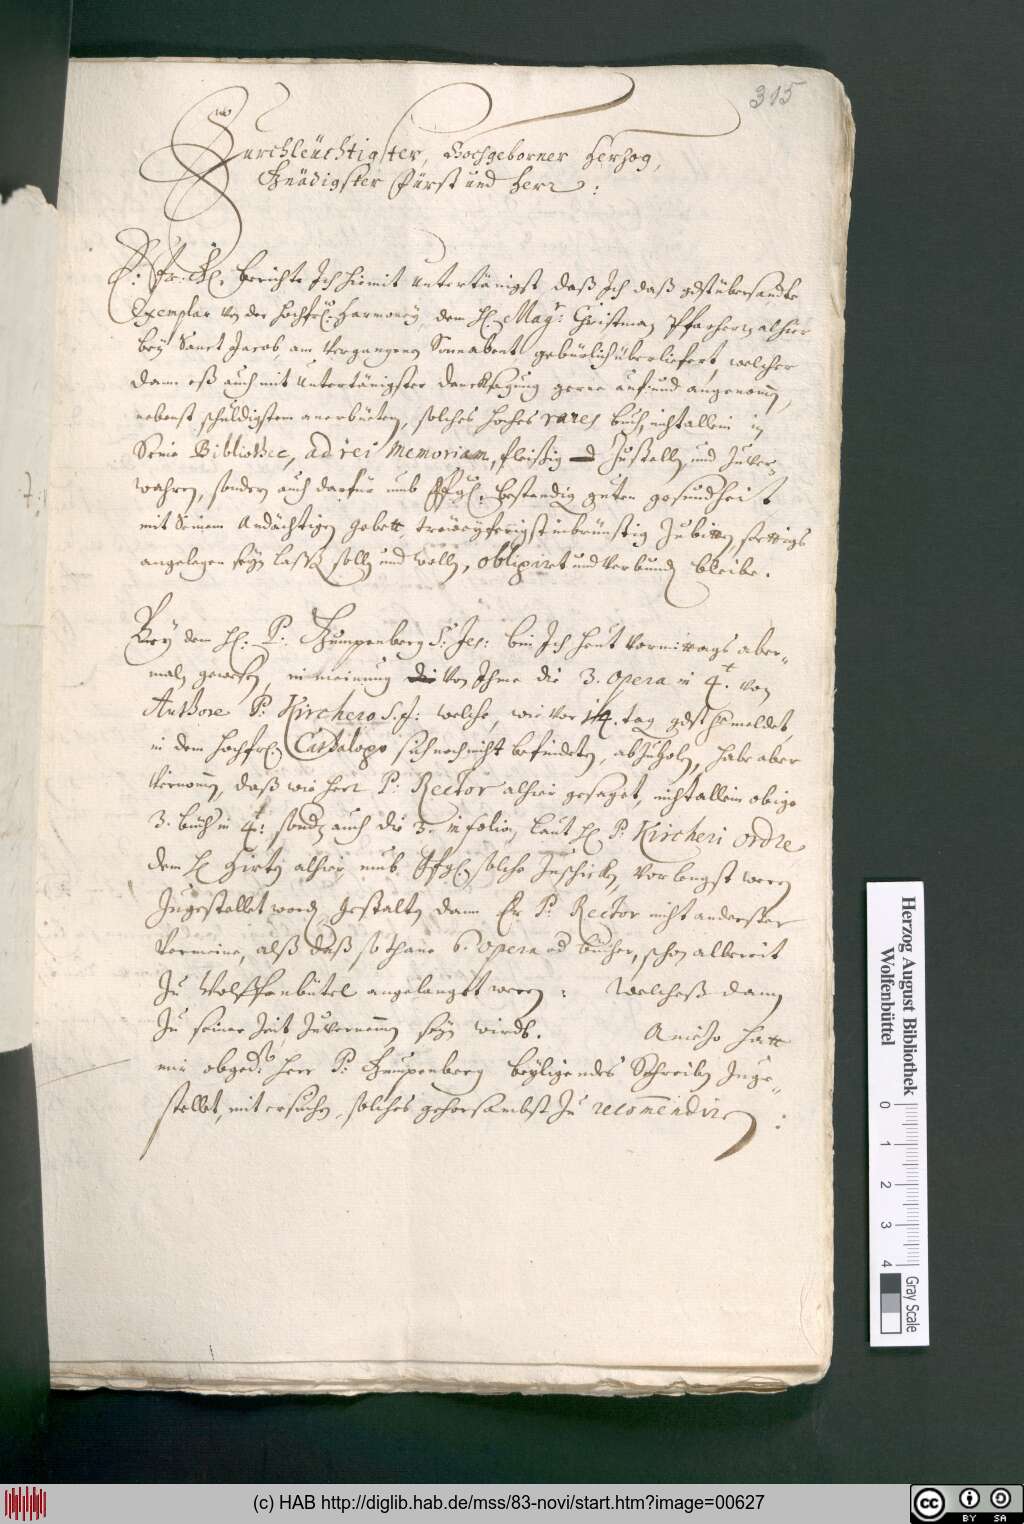 315
Durchleüchtigster, Hochgeborner Herzog,
Gnädigster Fürst und Herr:
berichte Ich hiemit untertänigst daß Ich daß gdst übersandte
Exemplar von der hochfr. Harmoney, dem H. Magr: Pfarherrn alhier
bey Sanct Jacob, am vergangenen Sonnabent gebürlich überliefert, welcher
dann eß auch mit untertänigster dancksagung gerne auf und angenomen,
nebenst schuldigstem anerbieten, solches hohes rares buch, nicht allein in
Seine Bibliothec, ad rei Memoriam, fleißig zustellen, und zuver-
wahren, sondern auch darfür umb bestendig guten gesundheit
mit Seinem Andächtigen gebett, inbrünstig zu bitten
angelegen seyn lassen solle und wolle, obligirt und verbunden bleibe.
Bey dem H: P: Gumpenberg S: Jes: bin Ich heut vormittags aber-
mals gewesen, in meinung von Ihme die 3. Opera in 4t. von
Authore P: Kirchero S.J: welche, wie vor 14. tag gdst gemeldet,
in dem hochfr. Cathalogo sich noch nicht befindeten, abzuholen, habe aber
vernomen, daß wie Herr P: Rector alhier gesaget, nicht allein obige
3. büch in 4t: sondern auch die 3. in folio, laut H P: Kircheri ordre
dem H Hirten alhier, umb solche zuschicken, vorlengst weren
zugestellet worden, gestalten dann Er P: Rector nicht anderster
vermeine, alß daß sothane 6. Opera od bücher, schon albereit
zu Wolffenbütel angelangtt weren: Welcheß dann
zu seiner Zeit zuvernemen seyn wirdt. hatt
mir obged: Herr P: Gumpenberg beyligendes Schreiben zuge-
stellet, mit ersuchen, solches gehorsambst zu recommendiren:
Herzog August Bibliothek
Wolfenbüttel
0 1 2 3 4
Gray Scale
(c) HAB http://diglib.hab.de/mss/83-novi/start.htm?image=00627
cc BY SA